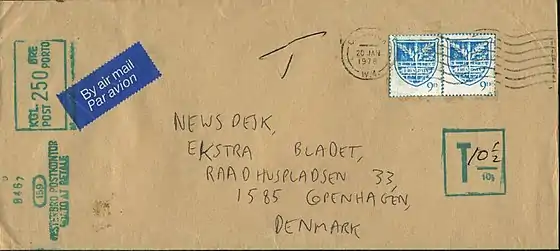 KGL. POST
250 ØRE
PORTO
By air mail
Par avion
T
20 JAN
1976
9p
9p
NEWS DESK,
EKSTRA BLADET,
RAADHUSPLADSEN 33,
1585 COPENHAGEN,
DENMARK
T 10 ½
10p
8467
159
VESTERBRO POSTKONTOR
PORTO AT BETALE